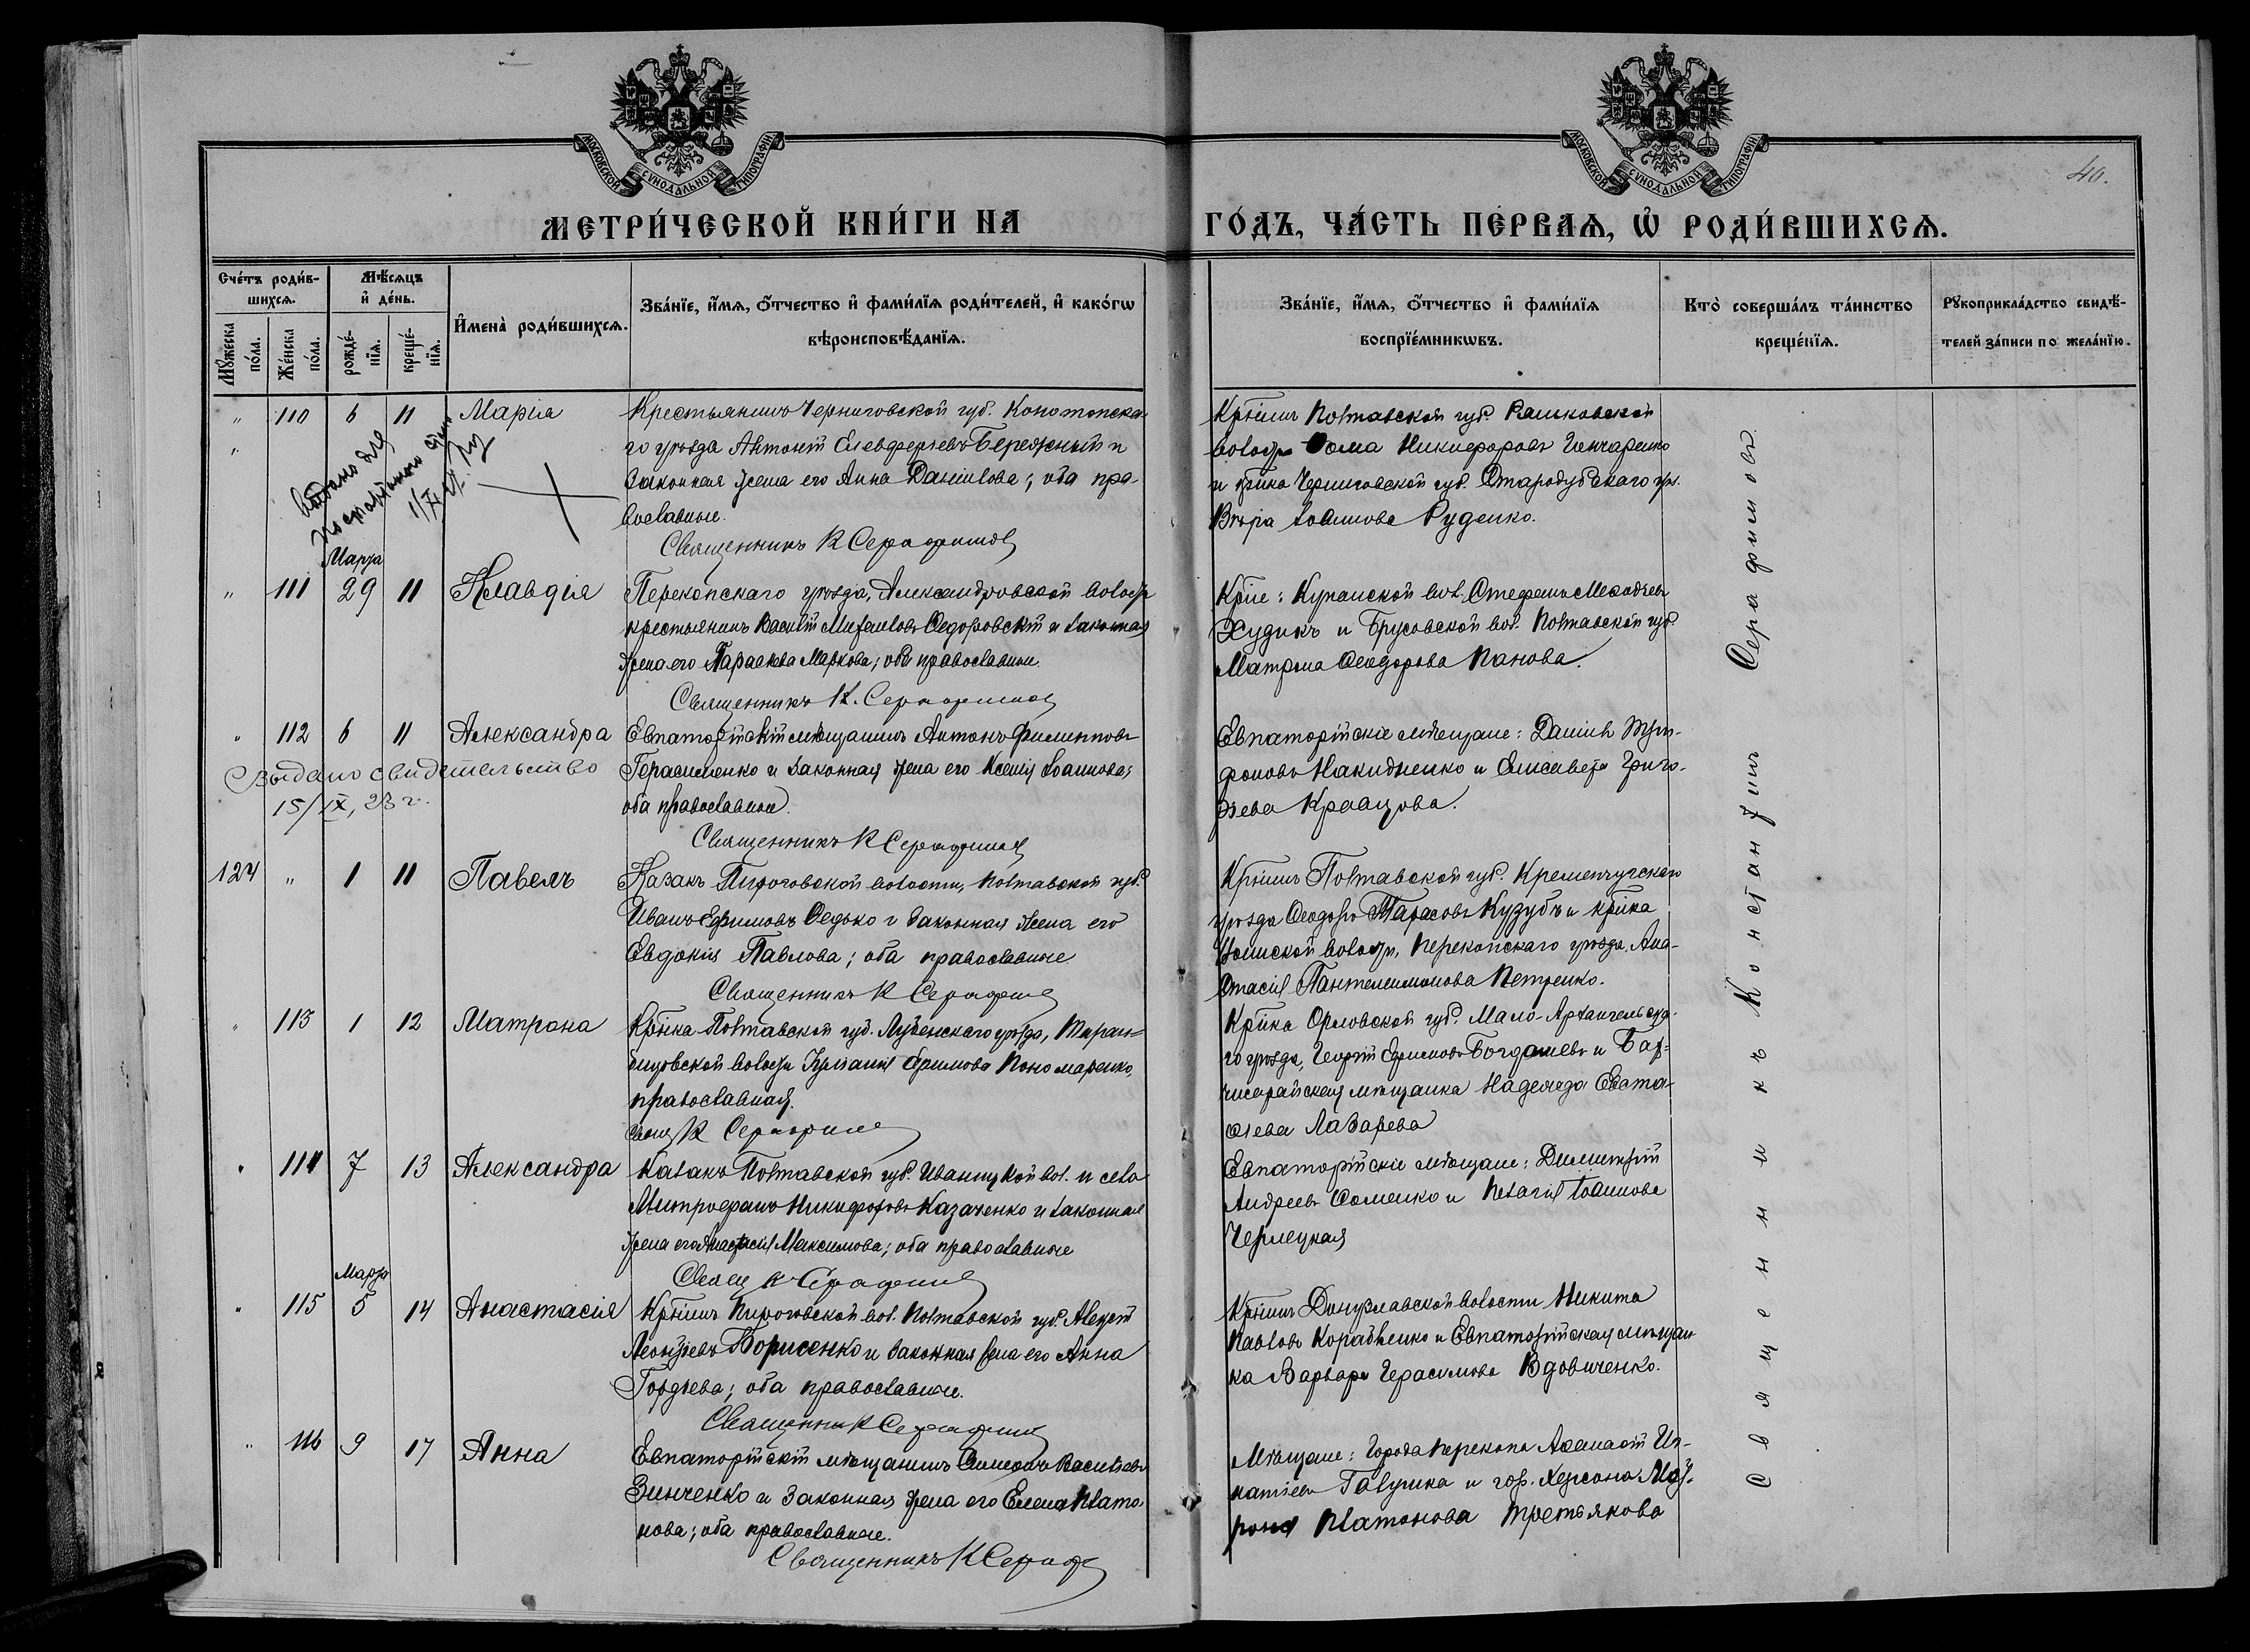 МОСКОВСКОЙ СѴНОДАЛЬНОЙ ТИПОГРАФІИ
МОСКОВСКОЙ СѴНОДАЛЬНОЙ ТИПОГРАФІИ
40.
МЕТРИ́ЧЕСКОЙ КНИ́ГИ НА
ГО́ДЪ, ЧА́СТЬ ПЕ́РВАѦ, Ѡ РОДИ́ВШИХСѦ.
Сче́тъ роди́в-
шихсѧ.
Мѣ́сѧцъ
и҆ де́нь.
Мꙋ́жеска по́ла.
Же́нска по́ла.
рожде́-
нїѧ.
креще́-
нїѧ.
И҆мена̀ роди́вшихсѧ.
Зва́нїе, и҆́мѧ, ѻ҆́тчество и҆ фами́лїѧ роди́телей, и҆ како́гѡ
вѣроисповѣ́данїѧ.
Зва́нїе, и҆́мѧ, ѻ҆́тчество и҆ фами́лїѧ
воспрїе́мникѡвъ.
Кто̀ соверша́лъ та́инство
креще́нїѧ.
Рꙋкоприкла́дство свидѣ́-
телей за́писи по жела́нїю.
" 110 6 11 Марія
Крестьянинъ Черниговской губ. Конотопска-
го уѣзда Антоній Елевферьевъ Бережный и
законная жена его Анна Даніилова; оба пра-
вославные.
Священникъ К Серафимов
Кр̃нинъ Полтавской губ. Рашковской
волости Ѳома Никифоровъ Гончаренко
и кр̃нка Черниговской губ. Стародубскаго у.
Вѣра Іоаннова Руденко.
Выдано для
Марта
" 111 29 11 Клавдія
Перекопскаго уѣзда, Александровской волости
крестьянинъ Василій Михаиловъ Ѳедоровскій и законная
жена его Параскева Маркова; оба православные.
Священникъ К. Серафимов
Кр̃не: Купанской вол. Стефанъ Меѳодіевъ
Худикъ и Брусовской вол. Полтавской губ.
Матрона Ѳеодорова Панова.
" 112 6 11 Александра
Евпаторійскій мѣщанинъ Антонъ Филипповъ
Герасименко и законная жена его Ксенія Іоаннова;
оба православные.
Священникъ К Серафимов
Выдано свидетельство
15/IX, 23 г.
Евпаторійскіе мѣщане: Даніилъ Три-
фоновъ Накидненко и Елисавета Григо-
рьева Кравцова.
124 " 1 11 Павелъ
Казакъ Пироговской волости, Полтавской губ.
Иванъ Ефимовъ Ѳедько и законная жена его
Евдокія Павлова; оба православные
Священникъ К Серафимов
Кр̃нинъ Полтавской губ. Кременчугскаго
уѣзда Ѳеодоръ Тарасовъ Кузубъ и кр̃нка
волости, Перекопскаго уѣзда, Ана-
стасія Пантелеимонова Петренко.
" 113 1 12 Матрона
Кр̃нка Полтавской губ. Лубенскаго уѣзда, Таран-
динцовской волости Іуліанія Ефимова Пономаренко,
православная.
Свящ К Серафимов
Кр̃нка Орловской губ. Мало-Архангельска-
го уѣзда, Георгій Ефимовъ Богдановъ и Бах-
чисарайская мѣщанка Надежда Евста-
фіева Лазарева
" 114 7 13 Александра
Казакъ Полтавской губ. Иваницкой вол. и села
Митрофанъ Никифоровъ Казаченко и законная
жена его Анастасія Максимова; оба православные
Свящ К Серафимов
Евпаторійскіе мѣщане: Димитрій
Андреевъ Соменко и Пелагія Іоаннова
Чернецкая
Марта
" 115 5 14 Анастасія
Кр̃нинъ Пироговской вол. Полтавской губ. Алексій
Леонтіевъ Борисенко и законная жена его Анна
Гордѣева; оба православные.
Священник К Серафимов
Кр̃нинъ Донузлавской волости Никита
Павловъ Корабленко и Евпаторійская мѣщан-
ка Варвара Герасимова Вдовиченко.
" 116 9 17 Анна
Евпаторійскій мѣщанинъ Симеонъ Васильевъ
Зинченко и законная жена его Елена Плато-
нова; оба православные.
Священникъ К Сераф
Мѣщане: Города Перекопа Аѳанасій Иг-
натіевъ Галушка и гор. Херсона Мат-
рона Платонова Третьякова
Священникъ Константинъ Серафимовъ